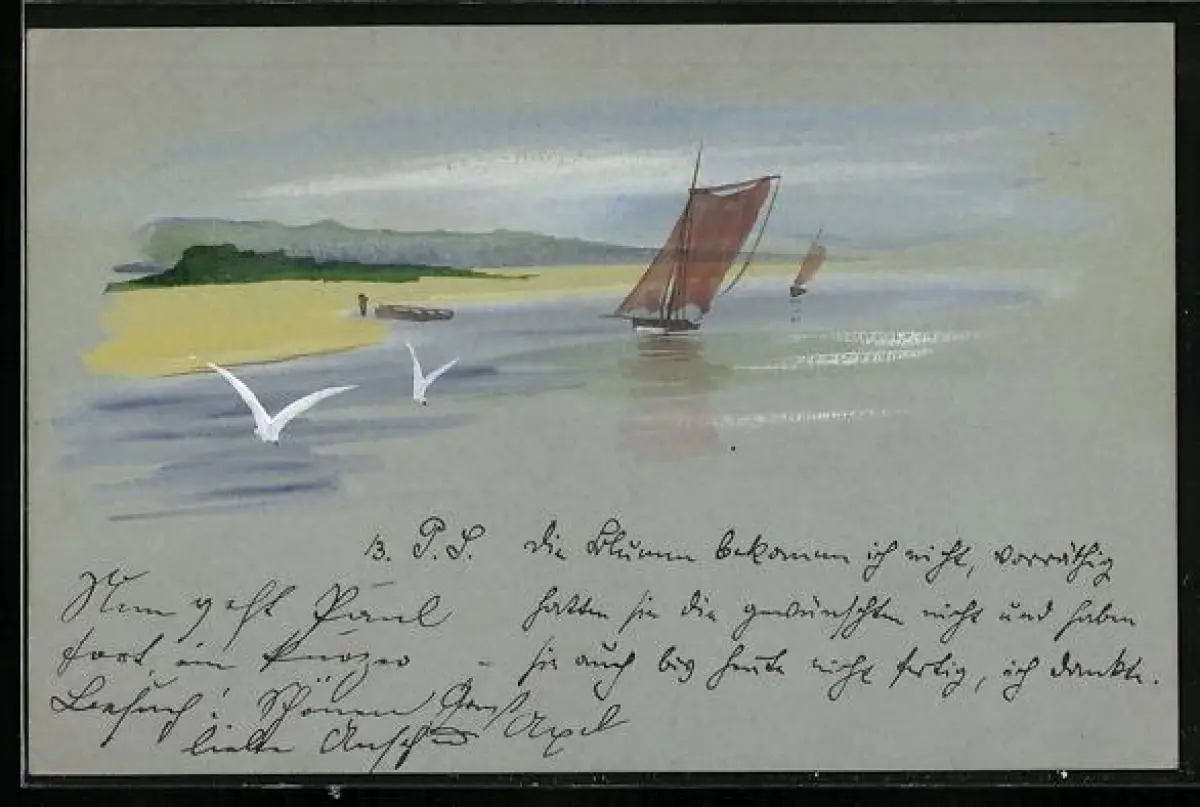 3. P.S. die Blumen bekomme ich nicht, vorräthig
hatten sie die gewünschten nicht und haben
sie auch bis heute nicht fertig, ich dankte.
Nun geht Paul
fort, ein kurzer
Besuch! Schönen Gruß
liebe Axel